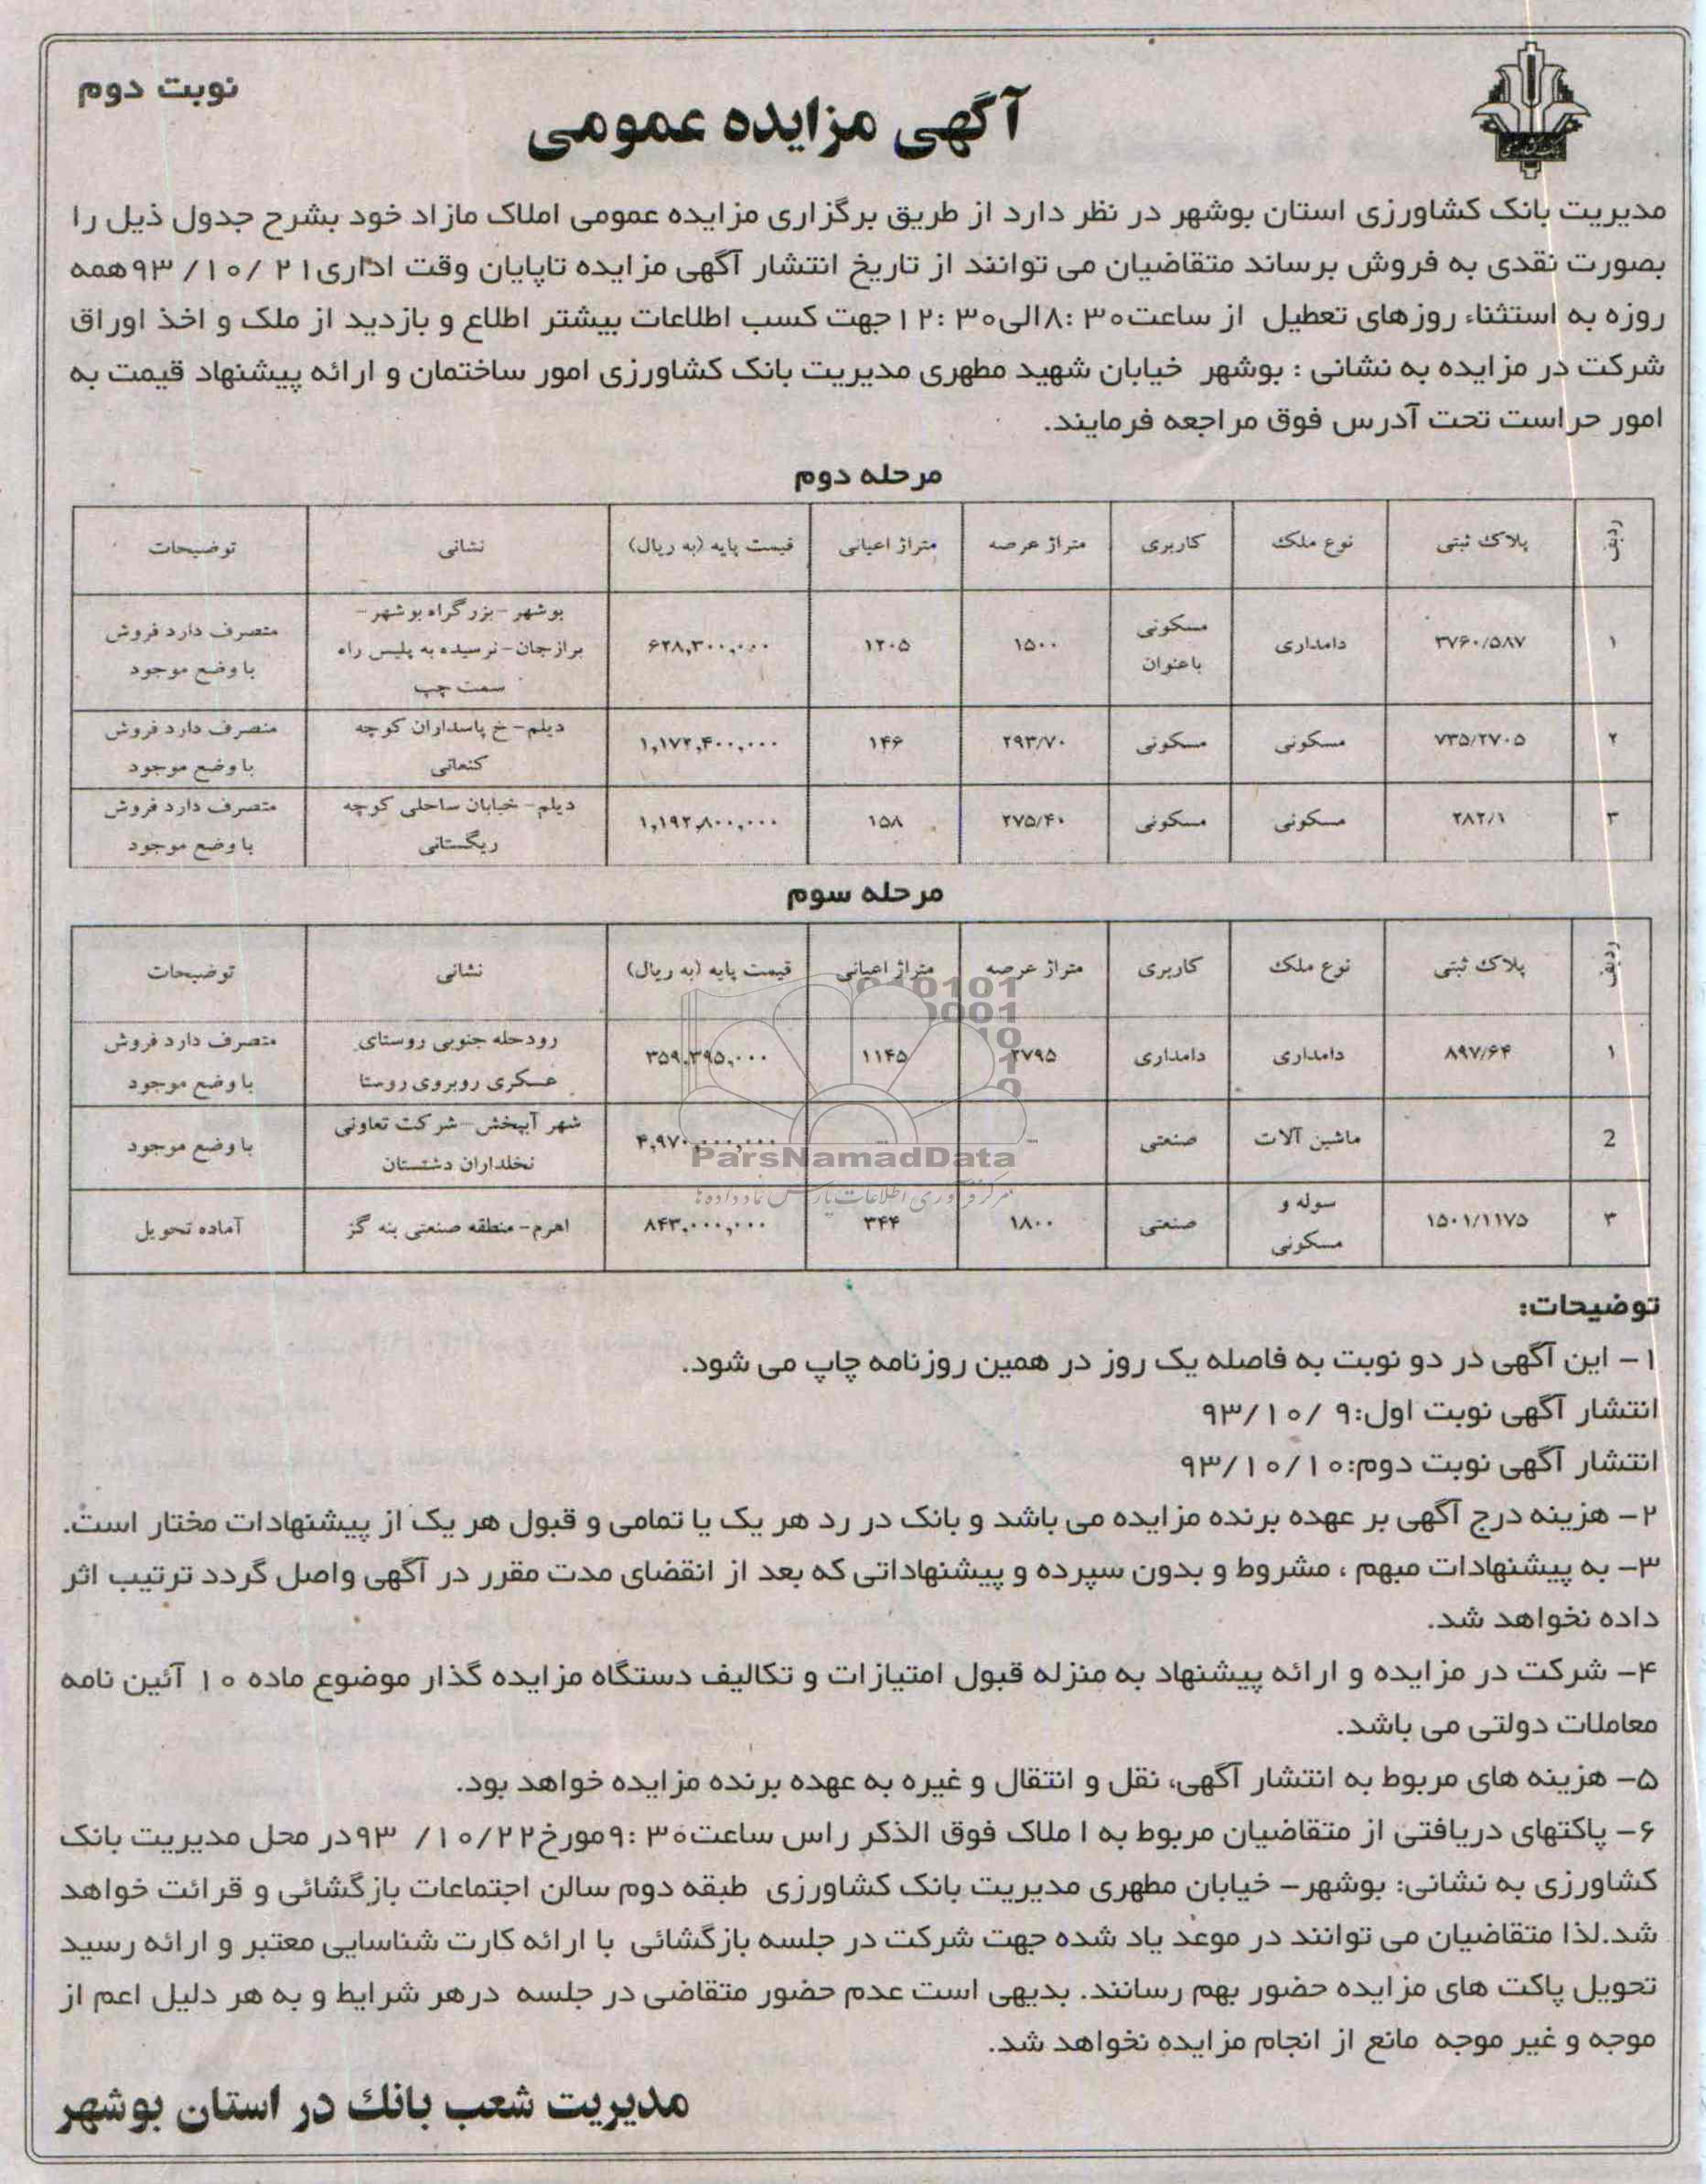 نوبت دوم
آگهی مزایده عمومی
مدیریت بانک کشاورزی استان بوشهر در نظر دارد از طریق برگزاری مزایده عمومی املاک مازاد خود بشرح جدول ذیل را
بصورت نقدی به فروش برساند متقاضیان می توانند از تاریخ انتشار آگهی مزایده تاپایان وقت اداری ۹۳/۱۰/۲۱ همه
روزه به استثناء روزهای تعطیل از ساعت ۸:۳۰ الی ۱۲:۳۰ جهت کسب اطلاعات بیشتر اطلاع و بازدید از ملک و اخذ اوراق
شرکت در مزایده به نشانی : بوشهر خیابان شهید مطهری مدیریت بانک کشاورزی امور ساختمان و ارائه پیشنهاد قیمت به
امور حراست تحت آدرس فوق مراجعه فرمایند.
مرحله دوم
ردیف پلاک ثبتی نوع ملک کاربری متراژ عرصه متراژ اعیانی قیمت پایه (به ریال) نشانی توضیحات
۱ ۳۷۶۰/۵۸۷ دامداری مسکونی باعنوان ۱۵۰۰ ۱۲۰۵ ۶۲۸,۳۰۰,۰۰۰ بوشهر -بزرگراه بوشهر- برازجان-نرسیده به پلیس راه سمت چپ متصرف دارد فروش با وضع موجود
۲ ۷۳۵/۲۷۰۵ مسکونی مسکونی ۲۹۳/۷۰ ۱۴۶ ۱,۱۷۲,۴۰۰,۰۰۰ دیلم- خ پاسداران کوچه کنعانی متصرف دارد فروش با وضع موجود
۳ ۲۸۲/۱ مسکونی مسکونی ۲۷۵/۴۰ ۱۵۸ ۱,۱۹۲,۸۰۰,۰۰۰ دیلم- خیابان ساحلی کوچه ریگستانی متصرف دارد فروش با وضع موجود
مرحله سوم
ردیف پلاک ثبتی نوع ملک کاربری متراژ عرصه متراژ اعیانی قیمت پایه (به ریال) نشانی توضیحات
۱ ۸۹۷/۶۴ دامداری دامداری ۲۷۹۵ ۱۱۴۵ ۳۵۹,۳۹۵,۰۰۰ رودحله جنوبی روستای عسکری روبروی روستا متصرف دارد فروش با وضع موجود
2 ماشین آلات صنعتی ۴,۹۷۰,۰۰۰,۰۰۰ شهر آبپخش-شرکت تعاونی نخلداران دشتستان با وضع موجود
۳ ۱۵۰۱/۱۱۷۵ سوله و مسکونی صنعتی ۱۸۰۰ ۳۴۴ ۸۴۳,۰۰۰,۰۰۰ اهرم-منطقه صنعتی بنه گز آماده تحویل
ParsNamadData
مرکز فرآوری اطلاعات پارس نماد داده ها
توضیحات:
۱- این آگهی در دو نوبت به فاصله یک روز در همین روزنامه چاپ می شود.
انتشار آگهی نوبت اول:۹۳/۱۰/۹
انتشار آگهی نوبت دوم:۹۳/۱۰/۱۰
۲- هزینه درج آگهی بر عهده برنده مزایده می باشد و بانک در رد هر یک یا تمامی و قبول هر یک از پیشنهادات مختار است.
۳- به پیشنهادات مبهم ، مشروط و بدون سپرده و پیشنهاداتی که بعد از انقضای مدت مقرر در آگهی واصل گردد ترتیب اثر
داده نخواهد شد.
۴- شرکت در مزایده و ارائه پیشنهاد به منزله قبول امتیازات و تکالیف دستگاه مزایده گذار موضوع ماده ۱۰ آئین نامه
معاملات دولتی می باشد.
۵- هزینه های مربوط به انتشار آگهی، نقل و انتقال و غیره به عهده برنده مزایده خواهد بود.
۶- پاکتهای دریافتی از متقاضیان مربوط به ا ملاک فوق الذکر راس ساعت ۹:۳۰ مورخ ۹۳/۱۰/۲۲ در محل مدیریت بانک
کشاورزی به نشانی: بوشهر- خیابان مطهری مدیریت بانک کشاورزی طبقه دوم سالن اجتماعات بازگشائی و قرائت خواهد
شد.لذا متقاضیان می توانند در موعد یاد شده جهت شرکت در جلسه بازگشائی با ارائه کارت شناسایی معتبر و ارائه رسید
تحویل پاکت های مزایده حضور بهم رسانند. بدیهی است عدم حضور متقاضی در جلسه درهر شرایط و به هر دلیل اعم از
موجه و غیر موجه مانع از انجام مزایده نخواهد شد.
مدیریت شعب بانك در استان بوشهر